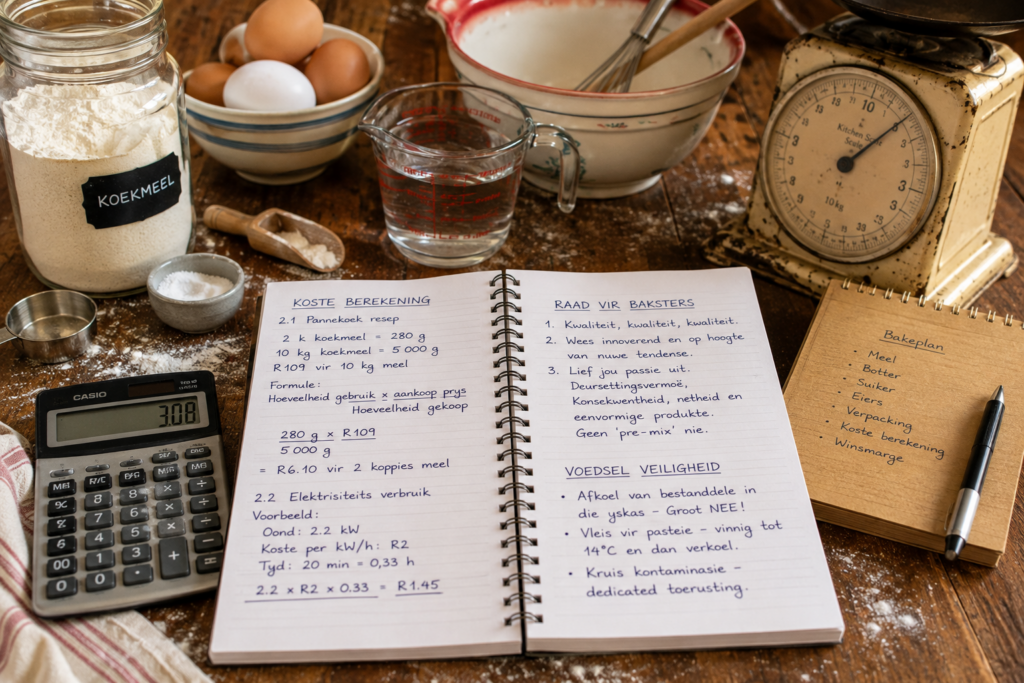 KOEKMEEL
Kitchen Scale
10 kg
CASIO
3.08
KOSTE BEREKENING
2.1 Pannekoek resep
2 k koekmeel = 280 g
10 kg koekmeel = 5 000 g
R109 vir 10 kg meel
Formule:
Hoeveelheid gebruik x aankoop prys
Hoeveelheid gekoop
280 g x R109
5 000 g
= R6.10 vir 2 koppies meel
2.2 Elektrisiteits verbruik
Voorbeeld:
Oond: 2.2 kW
Koste per kW/h: R2
Tyd: 20 min = 0,33 h
2.2 x R2 x 0.33 = R1.45
RAAD VIR BAKSTERS
1. Kwaliteit, kwaliteit, kwaliteit.
2. Wees innoverend en op hoogte
van nuwe tendense.
3. Lief jou passie uit.
Deursettingsvermoë,
Konsekwentheid, netheid en
eenvormige produkte.
Geen 'pre-mix' nie.
VOEDSEL VEILIGHEID
• Afkoel van bestanddele in
die yskas - Groot NEE!
• Vleis vir pasteie - vinnig tot
14°C en dan verkoel.
• Kruis kontaminasie -
dedicated toerusting.
Bakeplan
• Meel
• Botter
• Suiker
• Eiers
• Verpacking
• Koste berekening
• Winsmarge